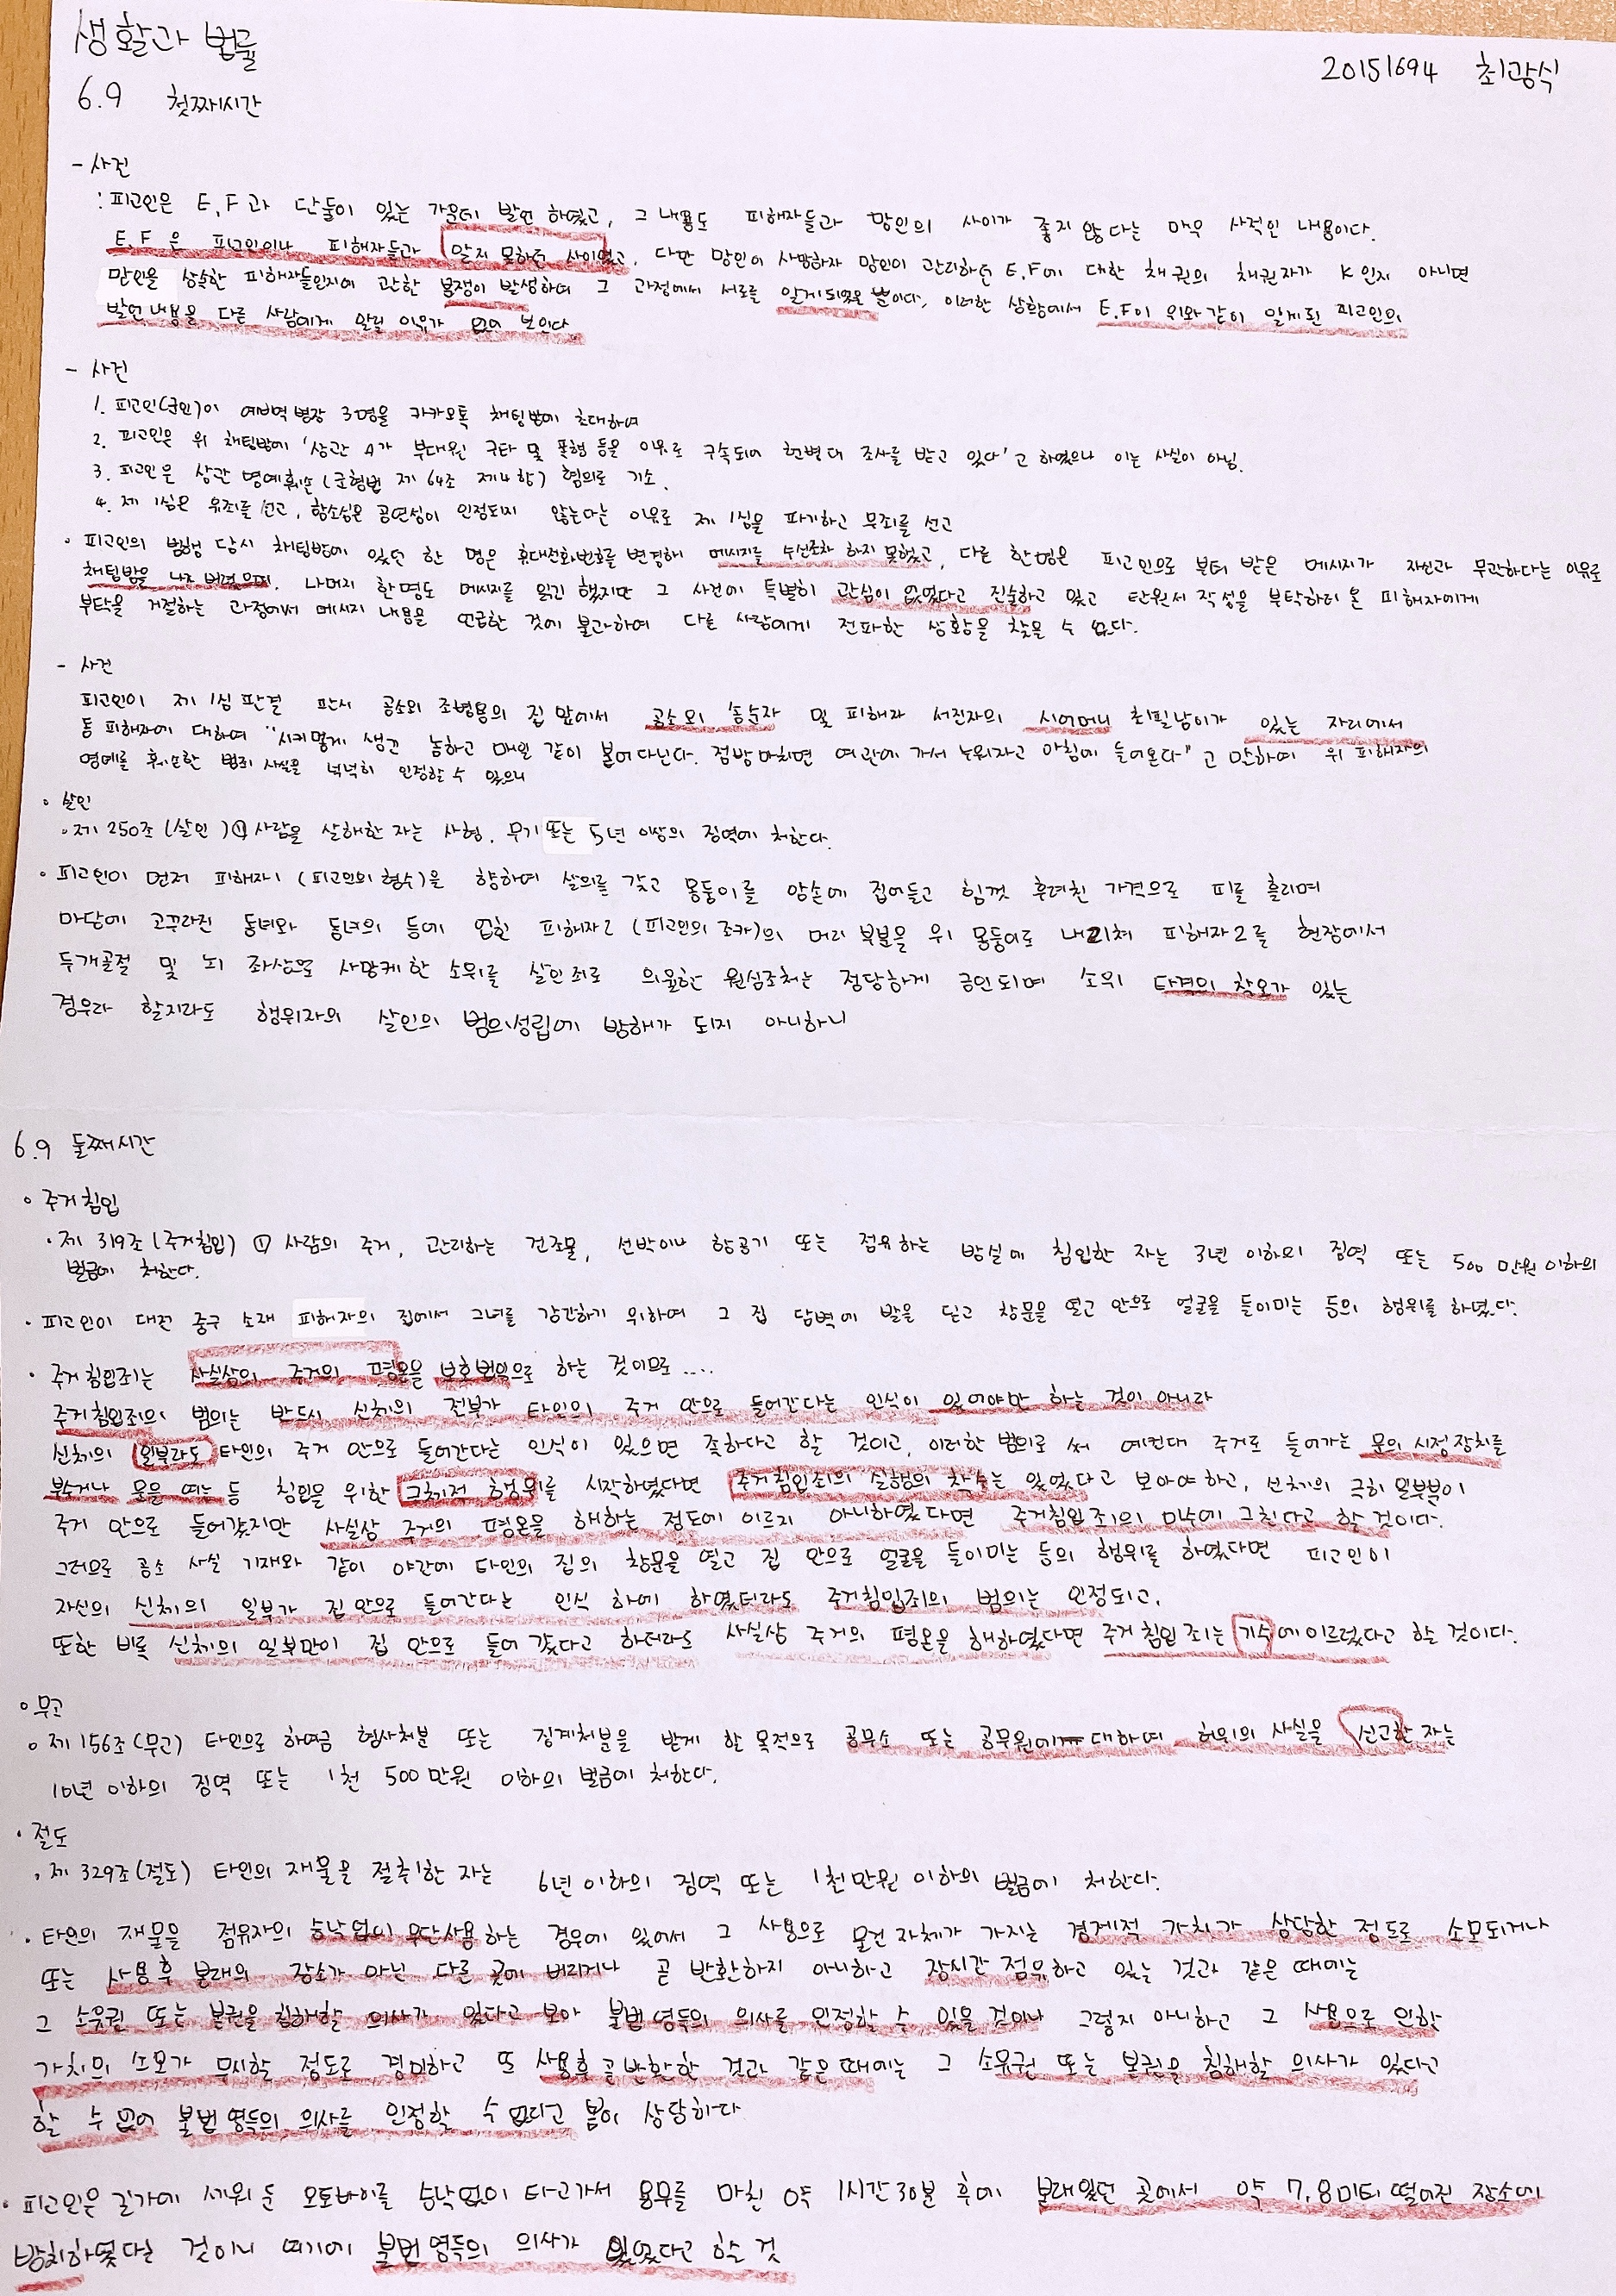 생활과 법률
20151694 최광식
6.9 첫째시간
- 사건
: 피고인은 E, F과 단둘이 있는 가운데 발언 하였고, 그 내용도 피해자들과 망인의 사이가 좋지 않다는 매우 사적인 내용이다.
E, F은 피고인이나 피해자들과 알지 못하던 사이였고, 다만 망인이 사망하자 망인이 관리하던 E, F에 대한 채권의 채권자가 K인지 아니면
망인을 상속한 피해자들인지에 관한 분쟁이 발생하여 그 과정에서 서로를 알게되었을 뿐이다. 이러한 상황에서 E, F이 위와같이 알게된 피고인의
발언내용을 다른 사람에게 알릴 이유가 없어 보인다.
- 사건
1. 피고인(군인)이 예비역 병장 3명을 카카오톡 채팅방에 초대하여
2. 피고인은 위 채팅방에 '상관 A가 부대원 구타 및 폭행 등을 이유로 구속되어 헌병대 조사를 받고 있다'고 하였으나 이는 사실이 아님.
3. 피고인은 상관 명예훼손(군형법 제 64조 제4항) 혐의로 기소.
4. 제 1심은 유죄를 선고, 항소심은 공연성이 인정되지 않는다는 이유로 제 1심을 파기하고 무죄를 선고
• 피고인의 범행 당시 채팅방에 있던 한 명은 휴대전화번호를 변경해 메시지를 수신조차 하지 못했고, 다른 한명은 피고인으로 부터 받은 메시지가 자신과 무관하다는 이유로
채팅방을 나가 버렸으며, 나머지 한명도 메시지를 읽긴 했지만 그 사건에 특별히 관심이 없었다고 진술하고 있고 탄원서 작성을 부탁하러 온 피해자에게
부탁을 거절하는 과정에서 메시지 내용을 언급한 것에 불과하여 다른 사람에게 전파한 상황을 찾을 수 없다.
- 사건
피고인이 제 1심 판결 판시 공소외 조병용의 집 앞에서 공소외 송순자 및 피해자 서진자의 시어머니 최필남이가 있는 자리에서
동 피해자에 대하여 "시커멓게 생긴 놈하고 매일 같이 붙어다닌다. 점방 마치면 여관에 가서 누워자고 아침에 들어온다"고 말하여 위 피해자의
명예를 훼손한 범죄 사실을 넉넉히 인정할 수 있으니
◦ 살인
◦ 제 250조 (살인) ① 사람을 살해한 자는 사형, 무기 또는 5년 이상의 징역에 처한다.
• 피고인이 먼저 피해자1 (피고인의 형수)을 향하여 살의를 갖고 몽둥이를 양손에 집어들고 힘껏 후려친 가격으로 피를 흘리며
마당에 고꾸라진 동녀와 동녀의 등에 업힌 피해자2 (피고인의 조카)의 머리 부분을 위 몽둥이로 내리쳐 피해자2를 현장에서
두개골절 및 뇌 좌상으로 사망케 한 소위를 살인죄로 의율한 원심조처는 정당하게 긍인되며 소위 타격의 착오가 있는
경우라 할지라도 행위자의 살인의 범의성립에 방해가 되지 아니하니
6.9 둘째시간
◦ 주거침입
• 제 319조 (주거침입) ① 사람의 주거, 관리하는 건조물, 선박이나 항공기 또는 점유하는 방실에 침입한 자는 3년 이하의 징역 또는 500만원 이하의
벌금에 처한다.
• 피고인이 대전 중구 소재 피해자의 집에서 그녀를 강간하기 위하여 그 집 담벽에 발을 딛고 창문을 열고 안으로 얼굴을 들이미는 등의 행위를 하였다.
• 주거침입죄는 사실상의 주거의 평온을 보호법익으로 하는 것이므로 ....
주거침입죄의 범의는 반드시 신체의 전부가 타인의 주거 안으로 들어간다는 인식이 있어야만 하는 것이 아니라
신체의 일부라도 타인의 주거 안으로 들어간다는 인식이 있으면 족하다고 할 것이고, 이러한 범의로 써 예컨대 주거로 들어가는 문의 시정장치를
부수거나 문을 여는 등 침입을 위한 구체적 행위를 시작하였다면 주거침입죄의 실행의 착수는 있었다고 보아야 하고, 신체의 극히 일부분이
주거 안으로 들어갔지만 사실상 주거의 평온을 해하는 정도에 이르지 아니하였다면 주거침입죄의 미수에 그친다고 할 것이다.
그러므로 공소 사실 기재와 같이 야간에 타인의 집의 창문을 열고 집 안으로 얼굴을 들이미는 등의 행위를 하였다면 피고인이
자신의 신체의 일부가 집 안으로 들어간다는 인식 하에 하였더라도 주거침입죄의 범의는 인정되고,
또한 비록 신체의 일부만이 집 안으로 들어 갔다고 하더라도 사실상 주거의 평온을 해하였다면 주거 침입 죄는 기수에 이르렀다고 할 것이다.
◦ 무고
◦ 제 156조 (무고) 타인으로 하여금 형사처분 또는 징계처분을 받게 할 목적으로 공무소 또는 공무원에 대하여 허위의 사실을 신고한 자는
10년 이하의 징역 또는 1천 500만원 이하의 벌금에 처한다.
• 절도
• 제 329조 (절도) 타인의 재물을 절취한 자는 6년 이하의 징역 또는 1천만원 이하의 벌금에 처한다.
• 타인의 재물을 점유자의 승낙없이 무단사용 하는 경우에 있어서 그 사용으로 물건 자체가 가지는 경제적 가치가 상당한 정도로 소모되거나
또는 사용 후 본래의 장소가 아닌 다른 곳에 버리거나 곧 반환하지 아니하고 장시간 점유하고 있는 것과 같은 때에는
그 소유권 또는 본권을 침해할 의사가 있다고 보아 불법 영득의 의사를 인정할 수 있을 것이나 그렇지 아니하고 그 사용으로 인한
가치의 소모가 무시할 정도로 경미하고 또 사용후 곧 반환한 것과 같은 때에는 그 소유권 또는 본권을 침해할 의사가 있다고
할 수 없어 불법 영득의 의사를 인정할 수 없다고 봄이 상당하다
• 피고인은 길가에 세워 둔 오토바이를 승낙없이 타고가서 용무를 마친 약 1시간 30분 후에 본래있던 곳에서 약 7,8미터 떨어진 장소에
방치하였다는 것이니 여기에 불법 영득의 의사가 있었다고 할 것